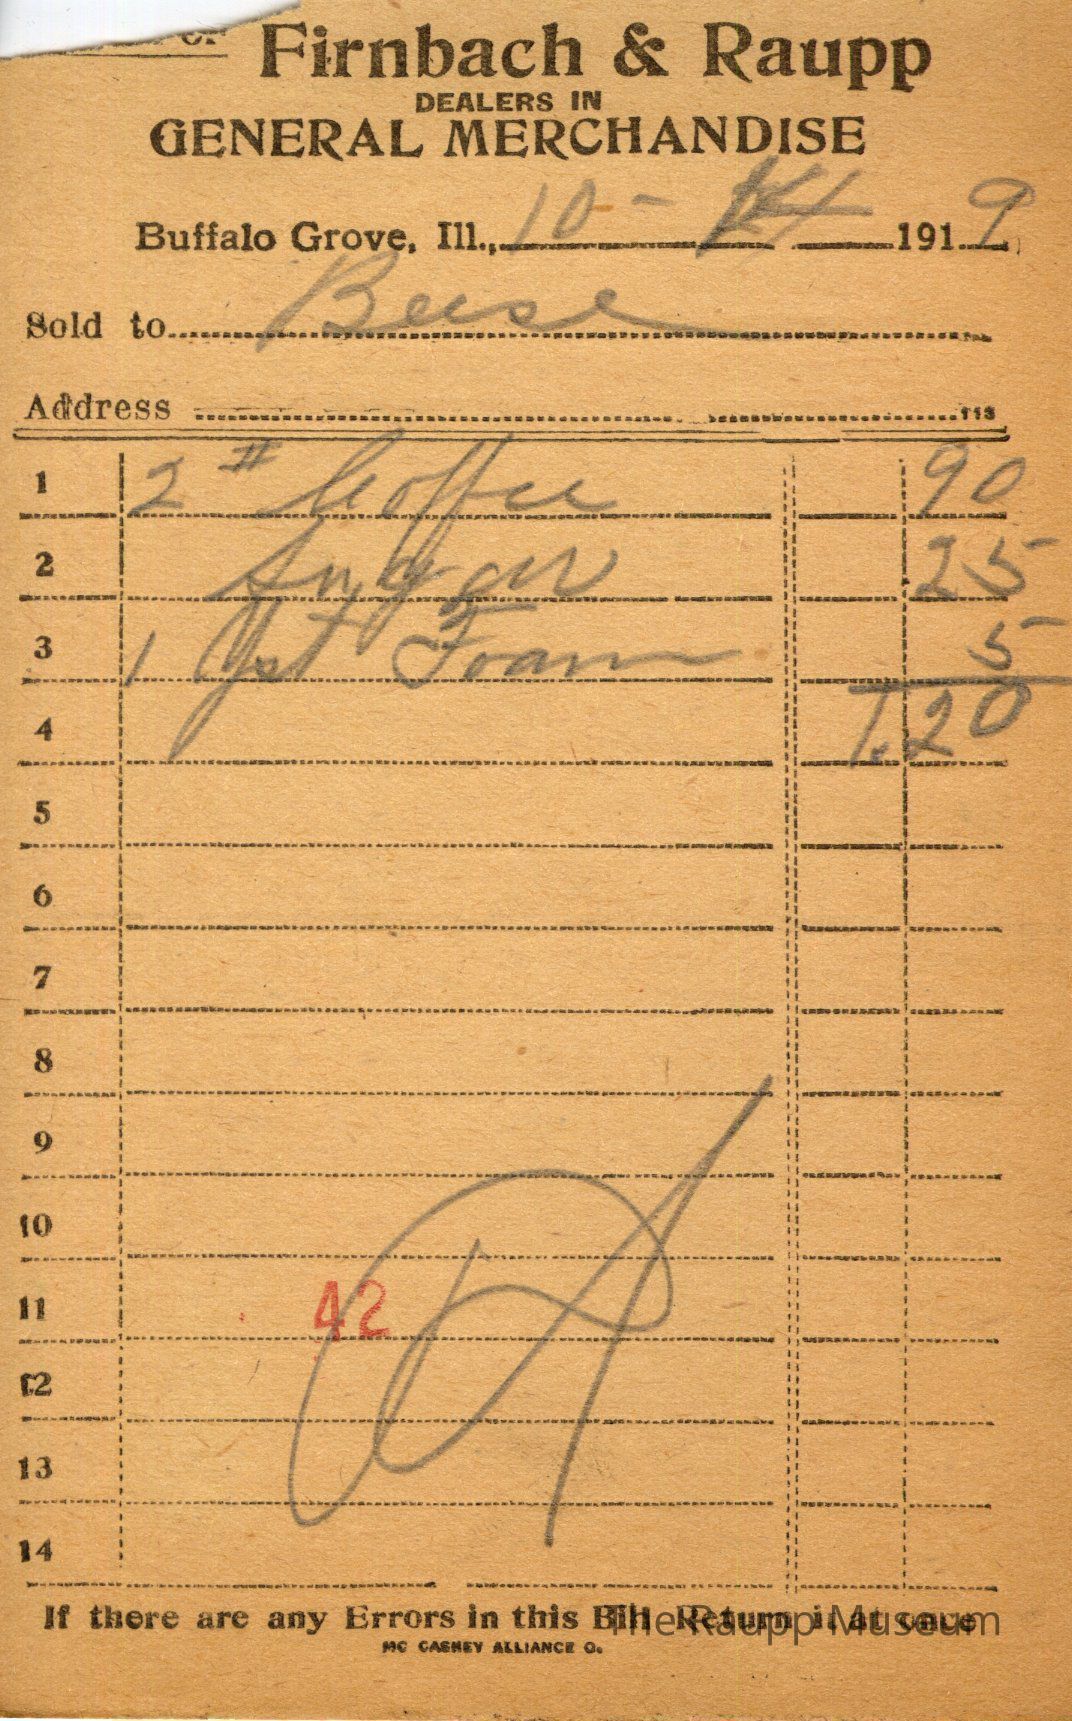 Firnbach & Raupp
DEALERS IN
GENERAL MERCHANDISE
Buffalo Grove, Ill., 10 - 191 9
Sold to Beese
Address 113
1 2 # Coffee 90
2 Sugar 25
3 1 Yst Foam 5
4 1.20
5
6
7
8
9
10
11 42
12
13
14
If there are any Errors in this Bill Return it at once
The Raupp Museum
MC CASKEY ALLIANCE O.